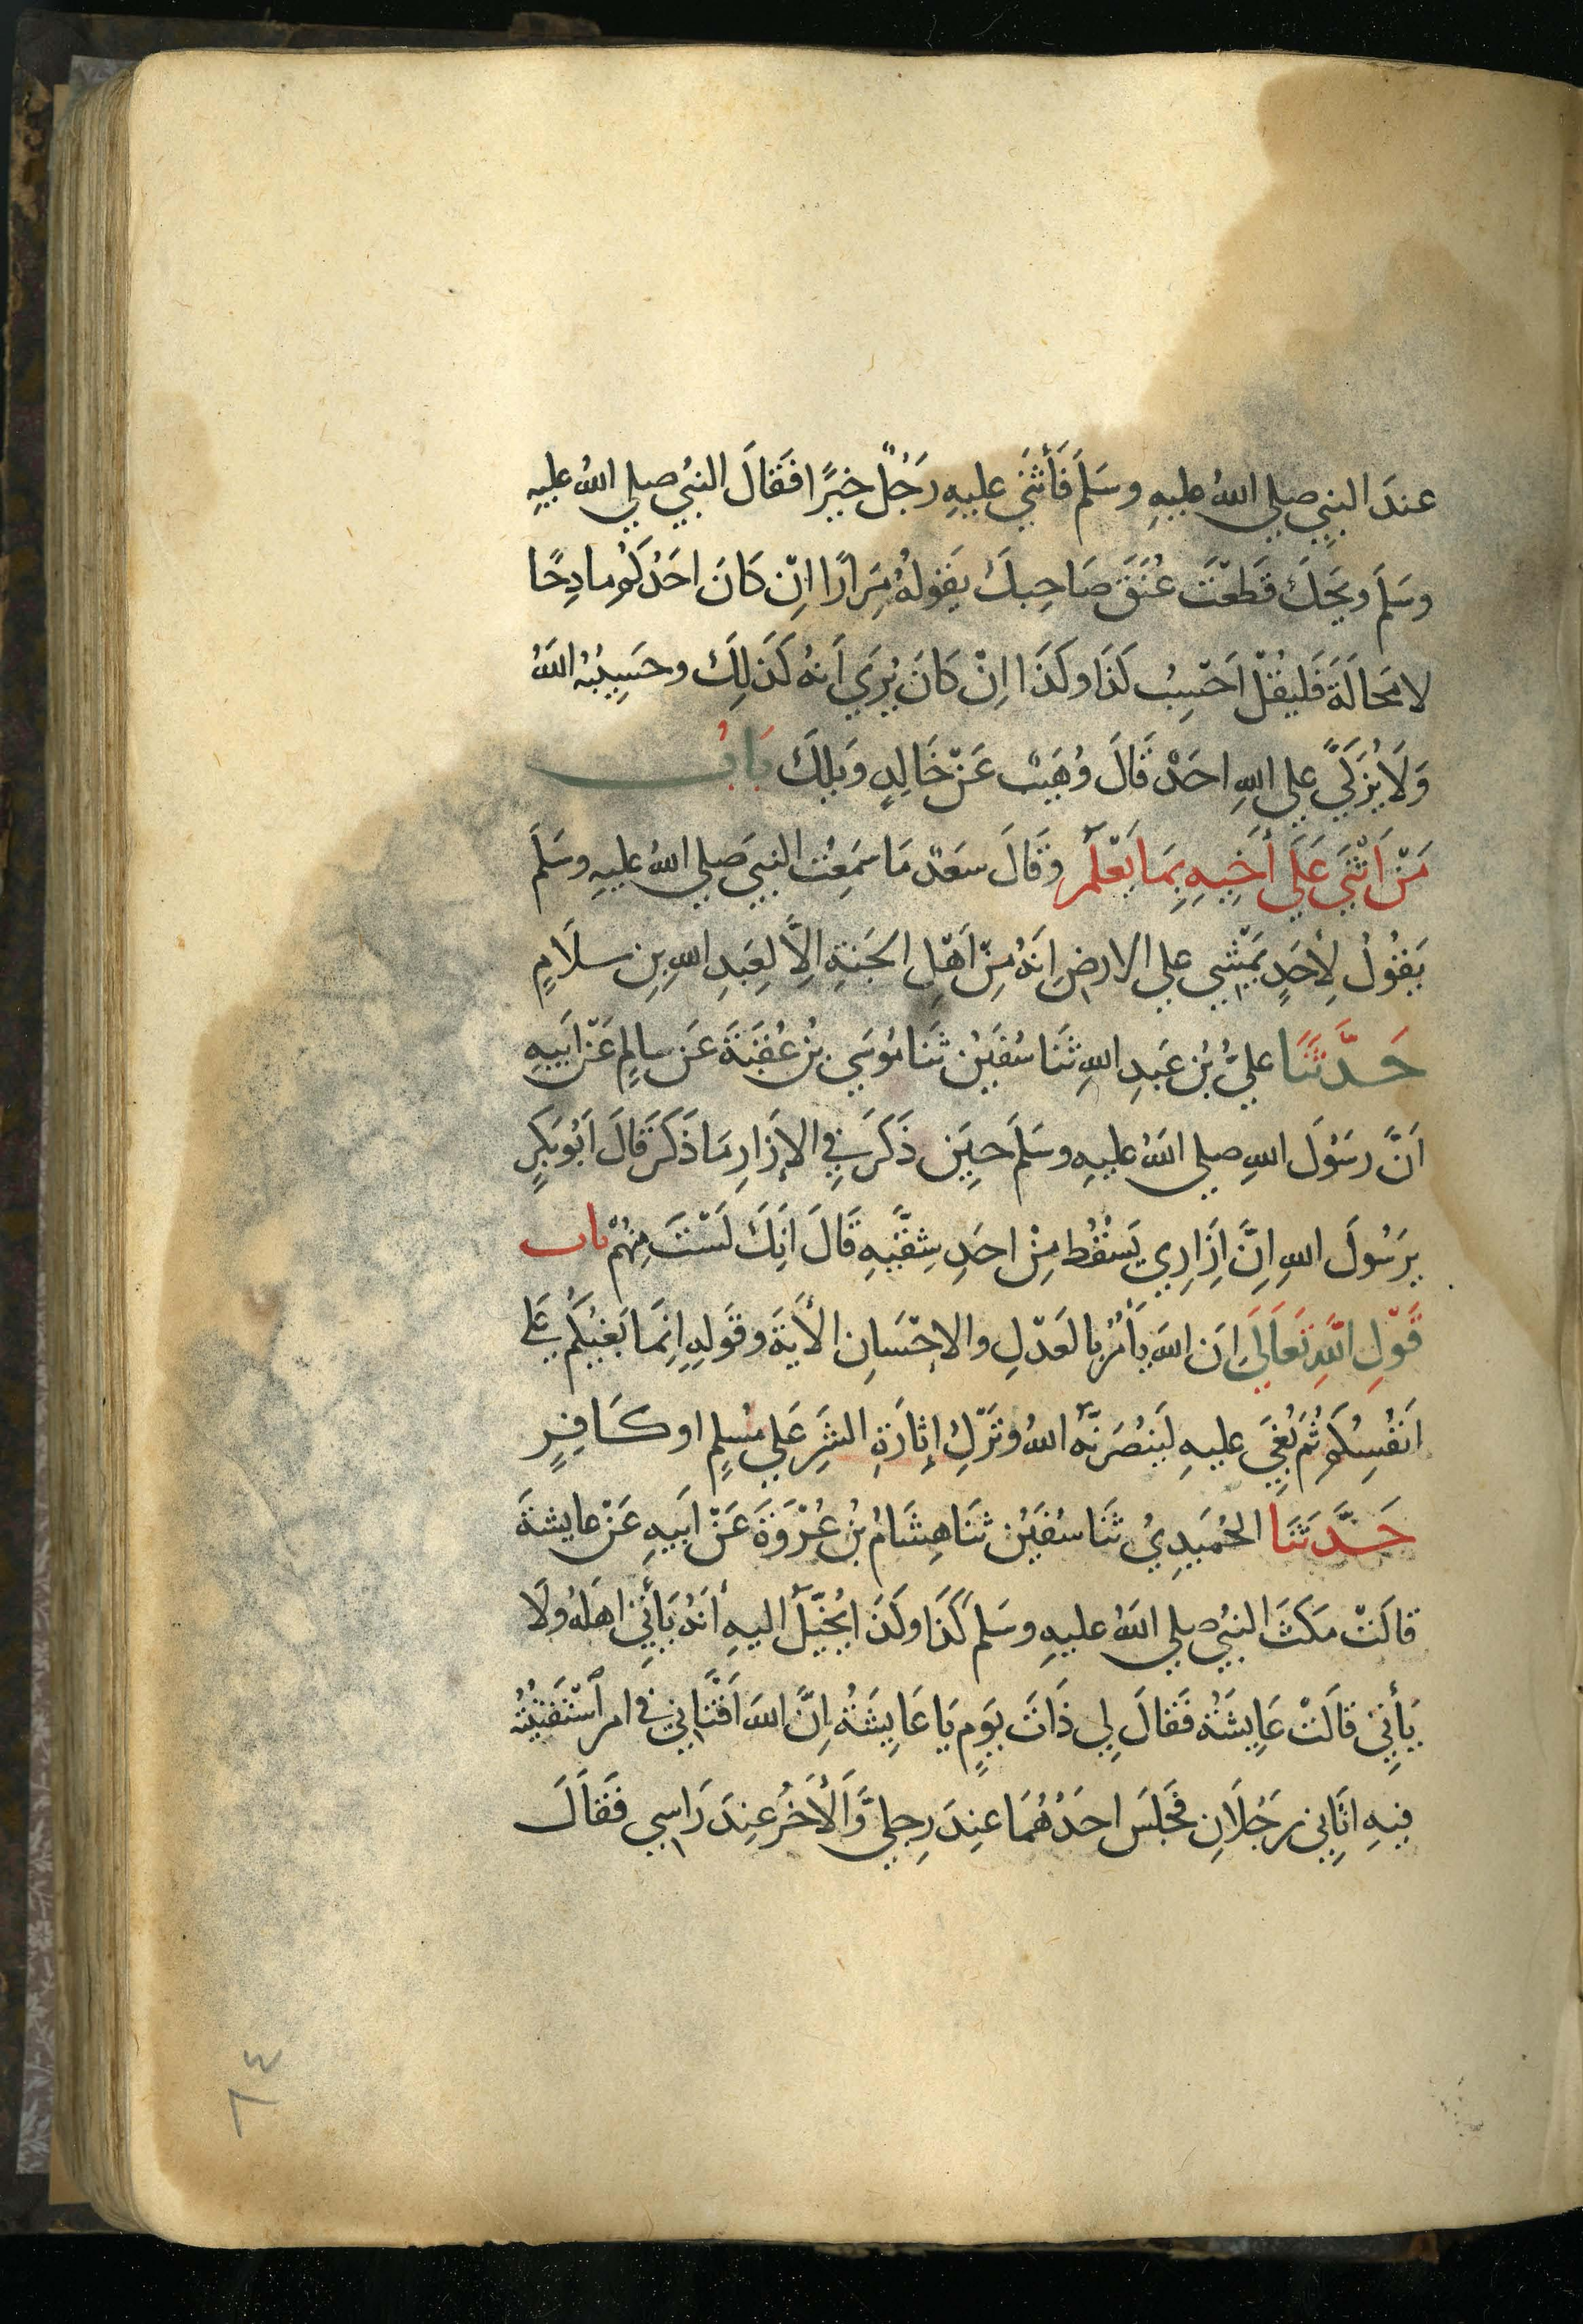 عندَ النبيِ صلي اللهُ عليهِ وسَلمَ فَأَثنَي عليهِ رَجُلٌ خيرًا فَقَالَ النبيُ صلي اللهُ عليهِ
وسَلمَ ويحَكَ قَطعْتَ عُنَقَ صَاحِبكَ يَقولهُ مِرَارًا اِنْ كَانَ احَدُكُم مادِحًا
لا محَالَةَ فَليقُلْ اَحْسِبُ كَذَا وكَذَا اِنْ كَانَ يُرَي اَنهُ كَذَلِكَ وحَسِيبُهُ اللهُ
وَلَا يُزَكيَّ علي اللهِ احَدٌ قَالَ وُهَيبٌ عَنْ خَالِدٍ وَيلكَ بَابُ
مَنْ اَثْنَي عَلَي أَخِيهِ بِمَا يَعْلَمُ وقَالَ سَعدٌ مَا سَمِعْتُ النبيَ صلي اللهُ عليهِ وسَلمَ
يَقُولُ لِأحَدٍ يَمْشِي علي الارضِ اِنهُ مِنْ اَهْلِ الجَنةِ اِلاَّ لِعَبدِ اللهِ بنِ سلَامٍ
حَدَّثَنَا عليُّ بنُ عَبدِ اللهِ ثَنَا سُفيَنُ ثَنَا مُوسَي بنُ عُقبَةَ عَن سالِمٍ عَنْ اَبيهِ
اَنَّ رسُوَلَ اللهِ صلي اللهُ عليهِ وسَلمَ حِينَ ذَكَرَ فِي الإزَارِ مَا ذَكَرَ قَالَ اَبُو بَكرٍ
يرَسُولَ اللهِ اِنَّ اِزَارِي يَسْقُط مِنْ احَدِ شِقَّيهِ قَالَ اِنَكَ لَسْتَ مِنهُمْ باب
قَوْلِ اللهِ تَعَالَي اِنَ اللهَ يَأمُرُ بالعَدْلِ والاِحْسَانِ الأيَةَ وقَولِهِ اِنمَا بَغيُكُم عَلي
اَنفُسِكُم ثُمَ بُغِيَ عليهِ لَيَنصُرَنَّه اللهُ وتَرْكِ إثَارَةِ الشَرِ عَلي مُسْلِمٍ او كَافِرٍ
حَدَّثَنَا الحُمَيدِيُ ثَنَا سُفيَنُ ثَنَا هِشَامُ بنُ عُرْوَةَ عَنْ اَبيهِ عَنْ عايشةَ
قالَتْ مَكثَ النبيُ صلي اللهُ عليهِ وسَلمَ كَذَا وكَذَا يُخيَّلُ اليهِ أنَهُ يَأتِي اهلَهُ ولَا
يَأتِي قالَتْ عَايِشَةُ فَقَالَ لِي ذَاتَ يَومٍ يَا عَايِشَةُ اِنَّ اللهَ اَفْتَانِي فِي امرٍ اسْتَفتَيتُهُ
فيهِ اتَانِي رَجُلَانِ فجَلَسَ احَدُهُمَا عندَ رِجلَيَّ وَالأخَرُ عِندَ رَاسِي فَقَالَ
٨٣